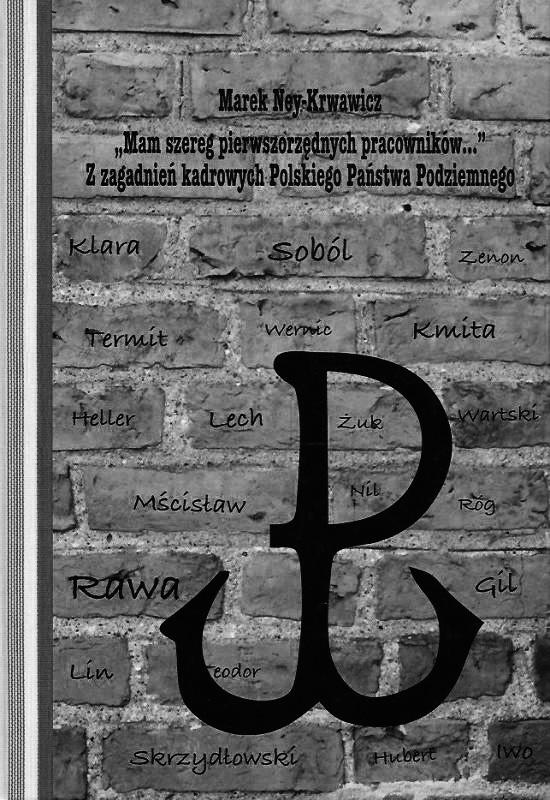 Marek Ney-Krwawicz
„Mam szereg pierwszorzędnych pracowników...”
Z zagadnień kadrowych Polskiego Państwa Podziemnego
Klara Soból Zenon
Termit Wernic Kmita
Heller Lech Żuk Wartski
Mścisław Nil Róg
Rawa Gil
Lin eodor
Skrzydłowski Hubert Iwo